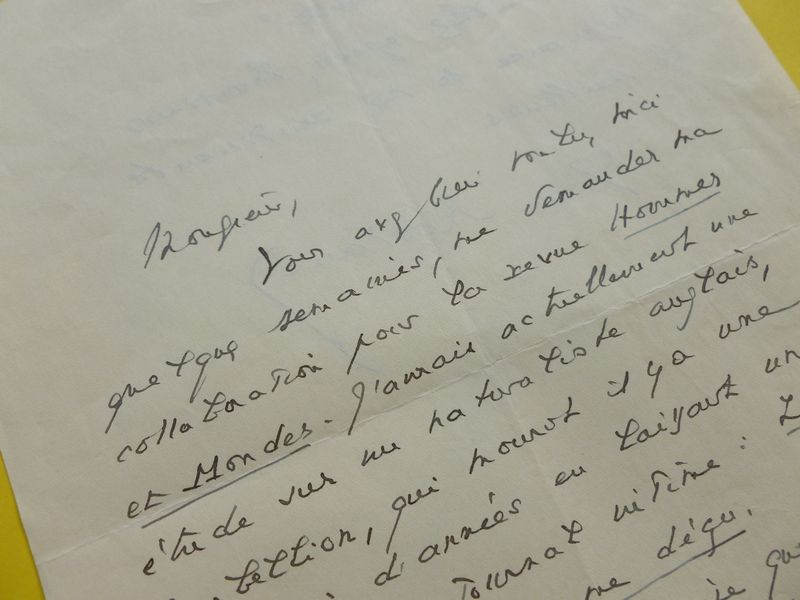 Monsieur,
Vous avez bien voulu, voici
quelques semaines, me demander ma
collaboration pour la revue Hommes
et Mondes. J'aurais actuellement une
étude sur un naturaliste anglais,
qui mourut il y a une
d'années en laissant un
Journal intime : 
déçu.
je